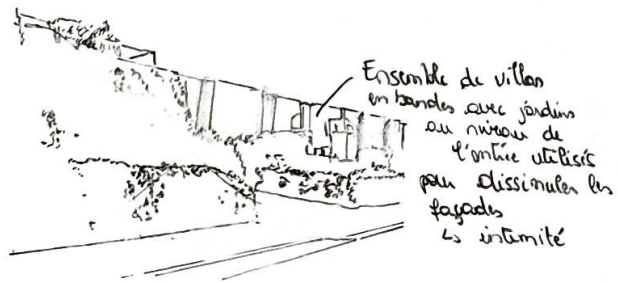 Ensemble de villas
en bandes avec jardins
au niveau de
l'entrée utilisés
pour dissimuler les
façades
↳ intimité